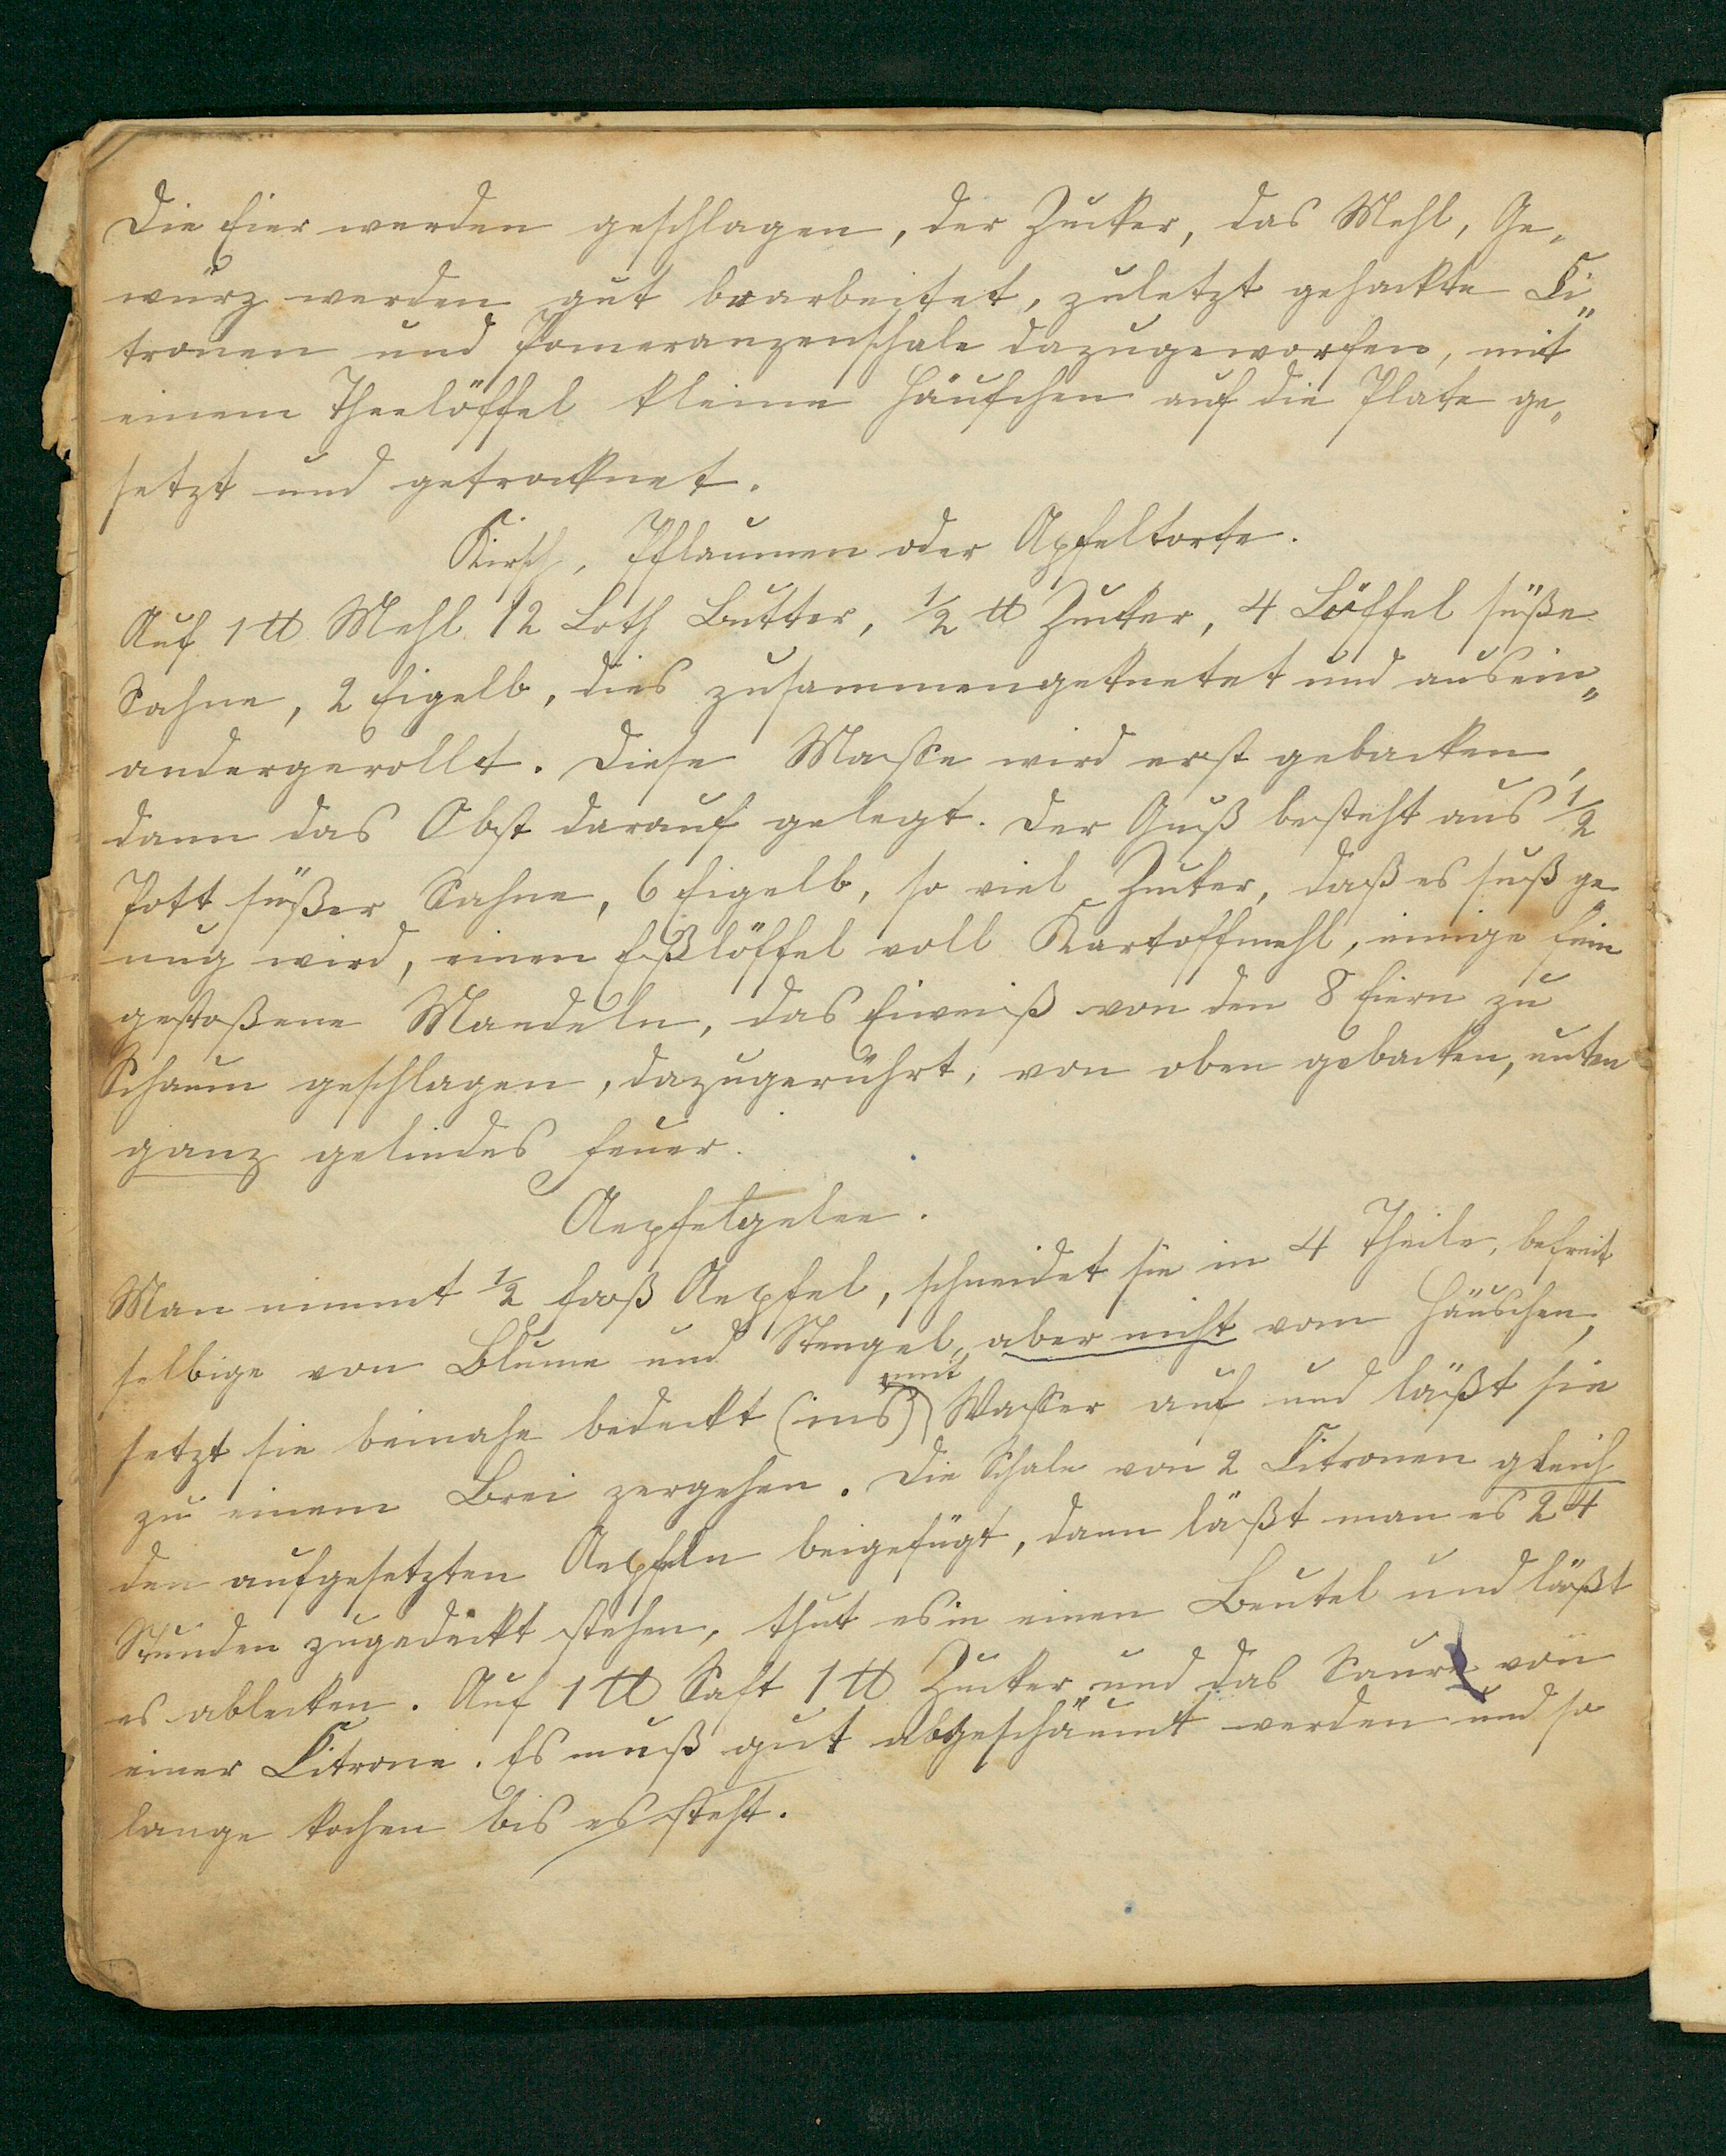 Die Eier werden geschlagen, der Zucker, das Mehl, Ge„
würz werden gut bearbeitet, zuletzt gehackte Ci„
tronen und Pomeranzenschale dazugeworfen, mit
einem Theelöffel kleine Häufchen auf die Plate ge„
setzt und getrocknet.
Kirsch, Pflaumen oder Apfeltorte.
Auf 1 ℔ Mehl 12 Loth Butter, ½ ℔ Zucker, 4 Löffel süße
Sahne, 2 Eigelb, dies zusammengeknetet und ausein„
andergerollt. Diese Masse wird erst gebacken,
dann das Obst darauf gelegt. Der Guß besteht aus ½
Pott süßer Sahne, 6 Eigelb, so viel Zucker, daß es süß ge
nug wird, einen Eßlöffel voll Kartoffmehl, einige fein
gestoßene Mandeln, das Eiweiß von den 8 Eiern zu
Schaum geschlagen, dazugerührt, von oben gebacken, unten
ganz gelindes Feuer.
Aepfelgelee.
Man nimmt ½ Faß Aepfel, schneidet sie in 4 Theile, befreit
selbige von Blume und Stengel, aber nicht vom Häuschen,
setzt sie beinahe bedeckt (ins) mit Wasser auf und läßt sie
zu einem Brei zergehen. Die Schale von 2 Citronen gleich
den aufgesetzten Aepfeln beigefügt, dann läßt man es 24
Stunden zugedeckt stehen, thut es in einen Beutel und läßt
es ablecken. Auf 1 ℔ Saft 1 ℔ Zucker und das Saure von
einer Citrone. Es muß gut abgeschäumt werden und so
lange kochen bis es steht.